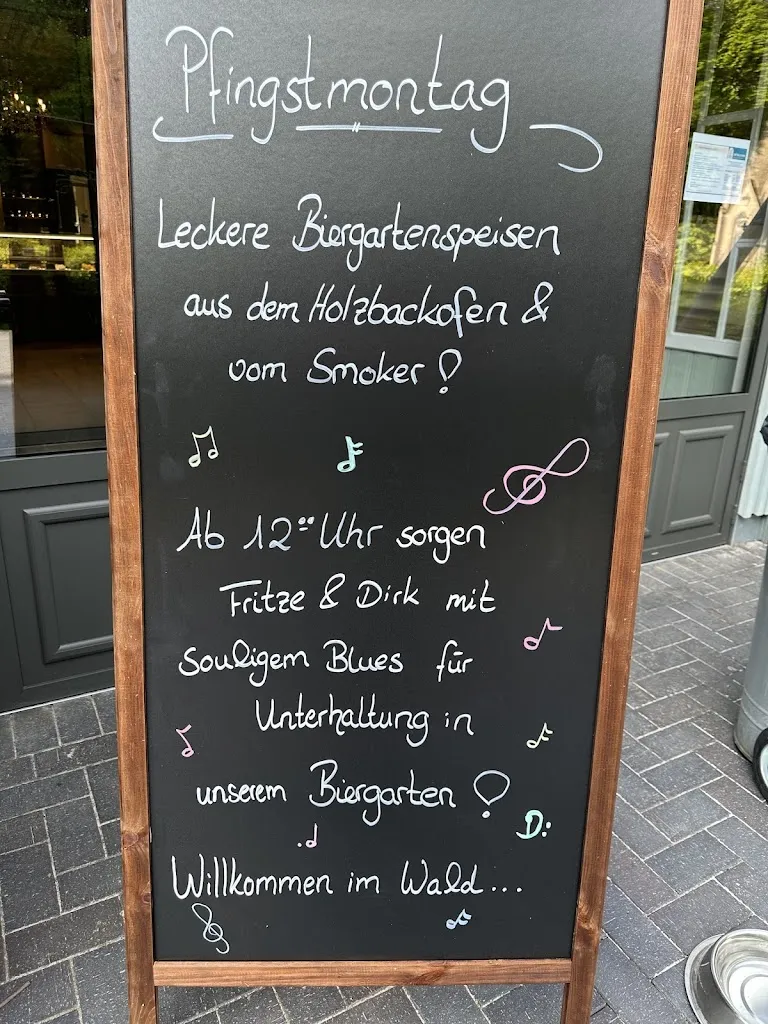 Pfingstmontag
Leckere Biergartenspeisen
aus dem Holzbackofen &
vom Smoker!
Ab 12:00 Uhr sorgen
Fritze & Dirk mit
souligem Blues für
Unterhaltung in
unserem Biergarten!
Willkommen im Wald...